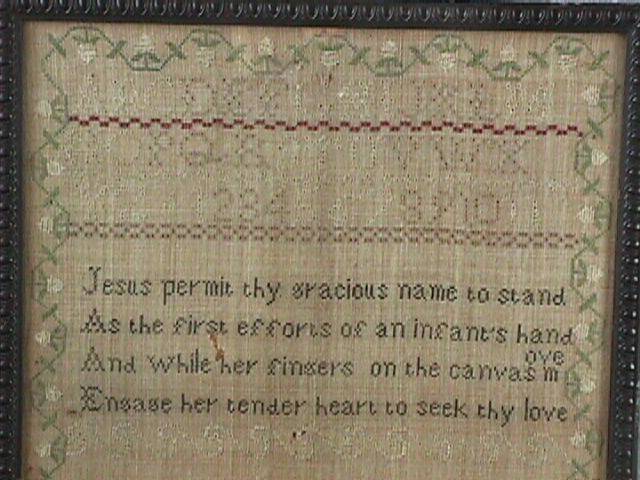 234 8910
Jesus permit thy gracious name to stand
As the first efforts of an infant's hand
And while her fingers on the canvas move
Engage her tender heart to seek thy love